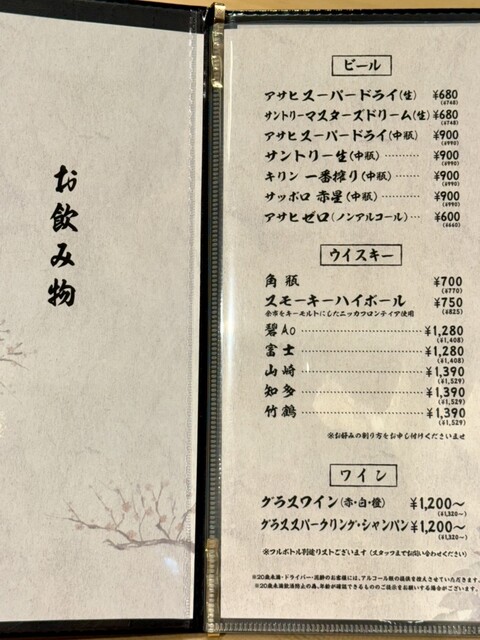 お飲み物
ビール
アサヒ スーパードライ(生) ¥680
(¥748)
サントリーマスターズドリーム(生) ¥680
(¥748)
アサヒ スーパードライ(中瓶) ¥900
(¥990)
サントリー生(中瓶) ········· ¥900
(¥990)
キリン 一番搾り(中瓶) ······ ¥900
(¥990)
サッポロ 赤星(中瓶) ········ ¥900
(¥990)
アサヒ ゼロ(ノンアルコール)··· ¥600
(¥660)
ウイスキー
角瓶 ¥700
(¥770)
スモーキーハイボール ¥750
(¥825)
余市をキーモルトにしたニッカフロンティア使用
碧Ao ························ ¥1,280
(¥1,408)
富士 ························ ¥1,280
(¥1,408)
山崎 ························ ¥1,390
(¥1,529)
知多 ························ ¥1,390
(¥1,529)
竹鶴 ························ ¥1,390
(¥1,529)
※お好みの割り方をお申し付けくださいませ
ワイン
グラスワイン(赤・白・橙) ¥1,200〜
(¥1,320〜)
グラススパークリング・シャンパン ¥1,200〜
(¥1,320〜)
※フルボトル別途リストございます(スタッフまでお問い合わせください)
※20歳未満・ドライバー・妊娠中のお客様には、アルコール類の提供を控えさせていただきます。
※20歳未満飲酒防止の為、年齢が確認できるもののご提示をお願いする場合がございます。